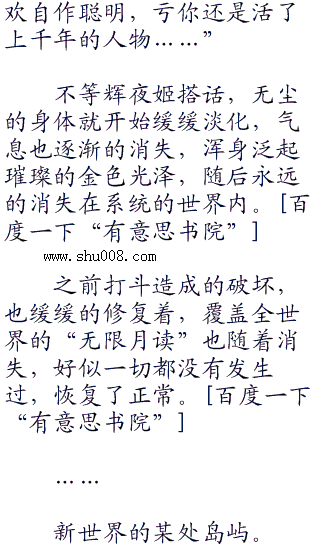 欢自作聪明，亏你还是活了
上千年的人物……”
不等辉夜姬搭话，无尘
的身体就开始缓缓淡化，气
息也逐渐的消失，浑身泛起
璀璨的金色光泽，随后永远
的消失在系统的世界内。[百
度一下“有意思书院”]
www.shu008.com
之前打斗造成的破坏，
也缓缓的修复着，覆盖全世
界的“无限月读”也随着消
失，好似一切都没有发生
过，恢复了正常。[百度一下
“有意思书院”]
……
新世界的某处岛屿。